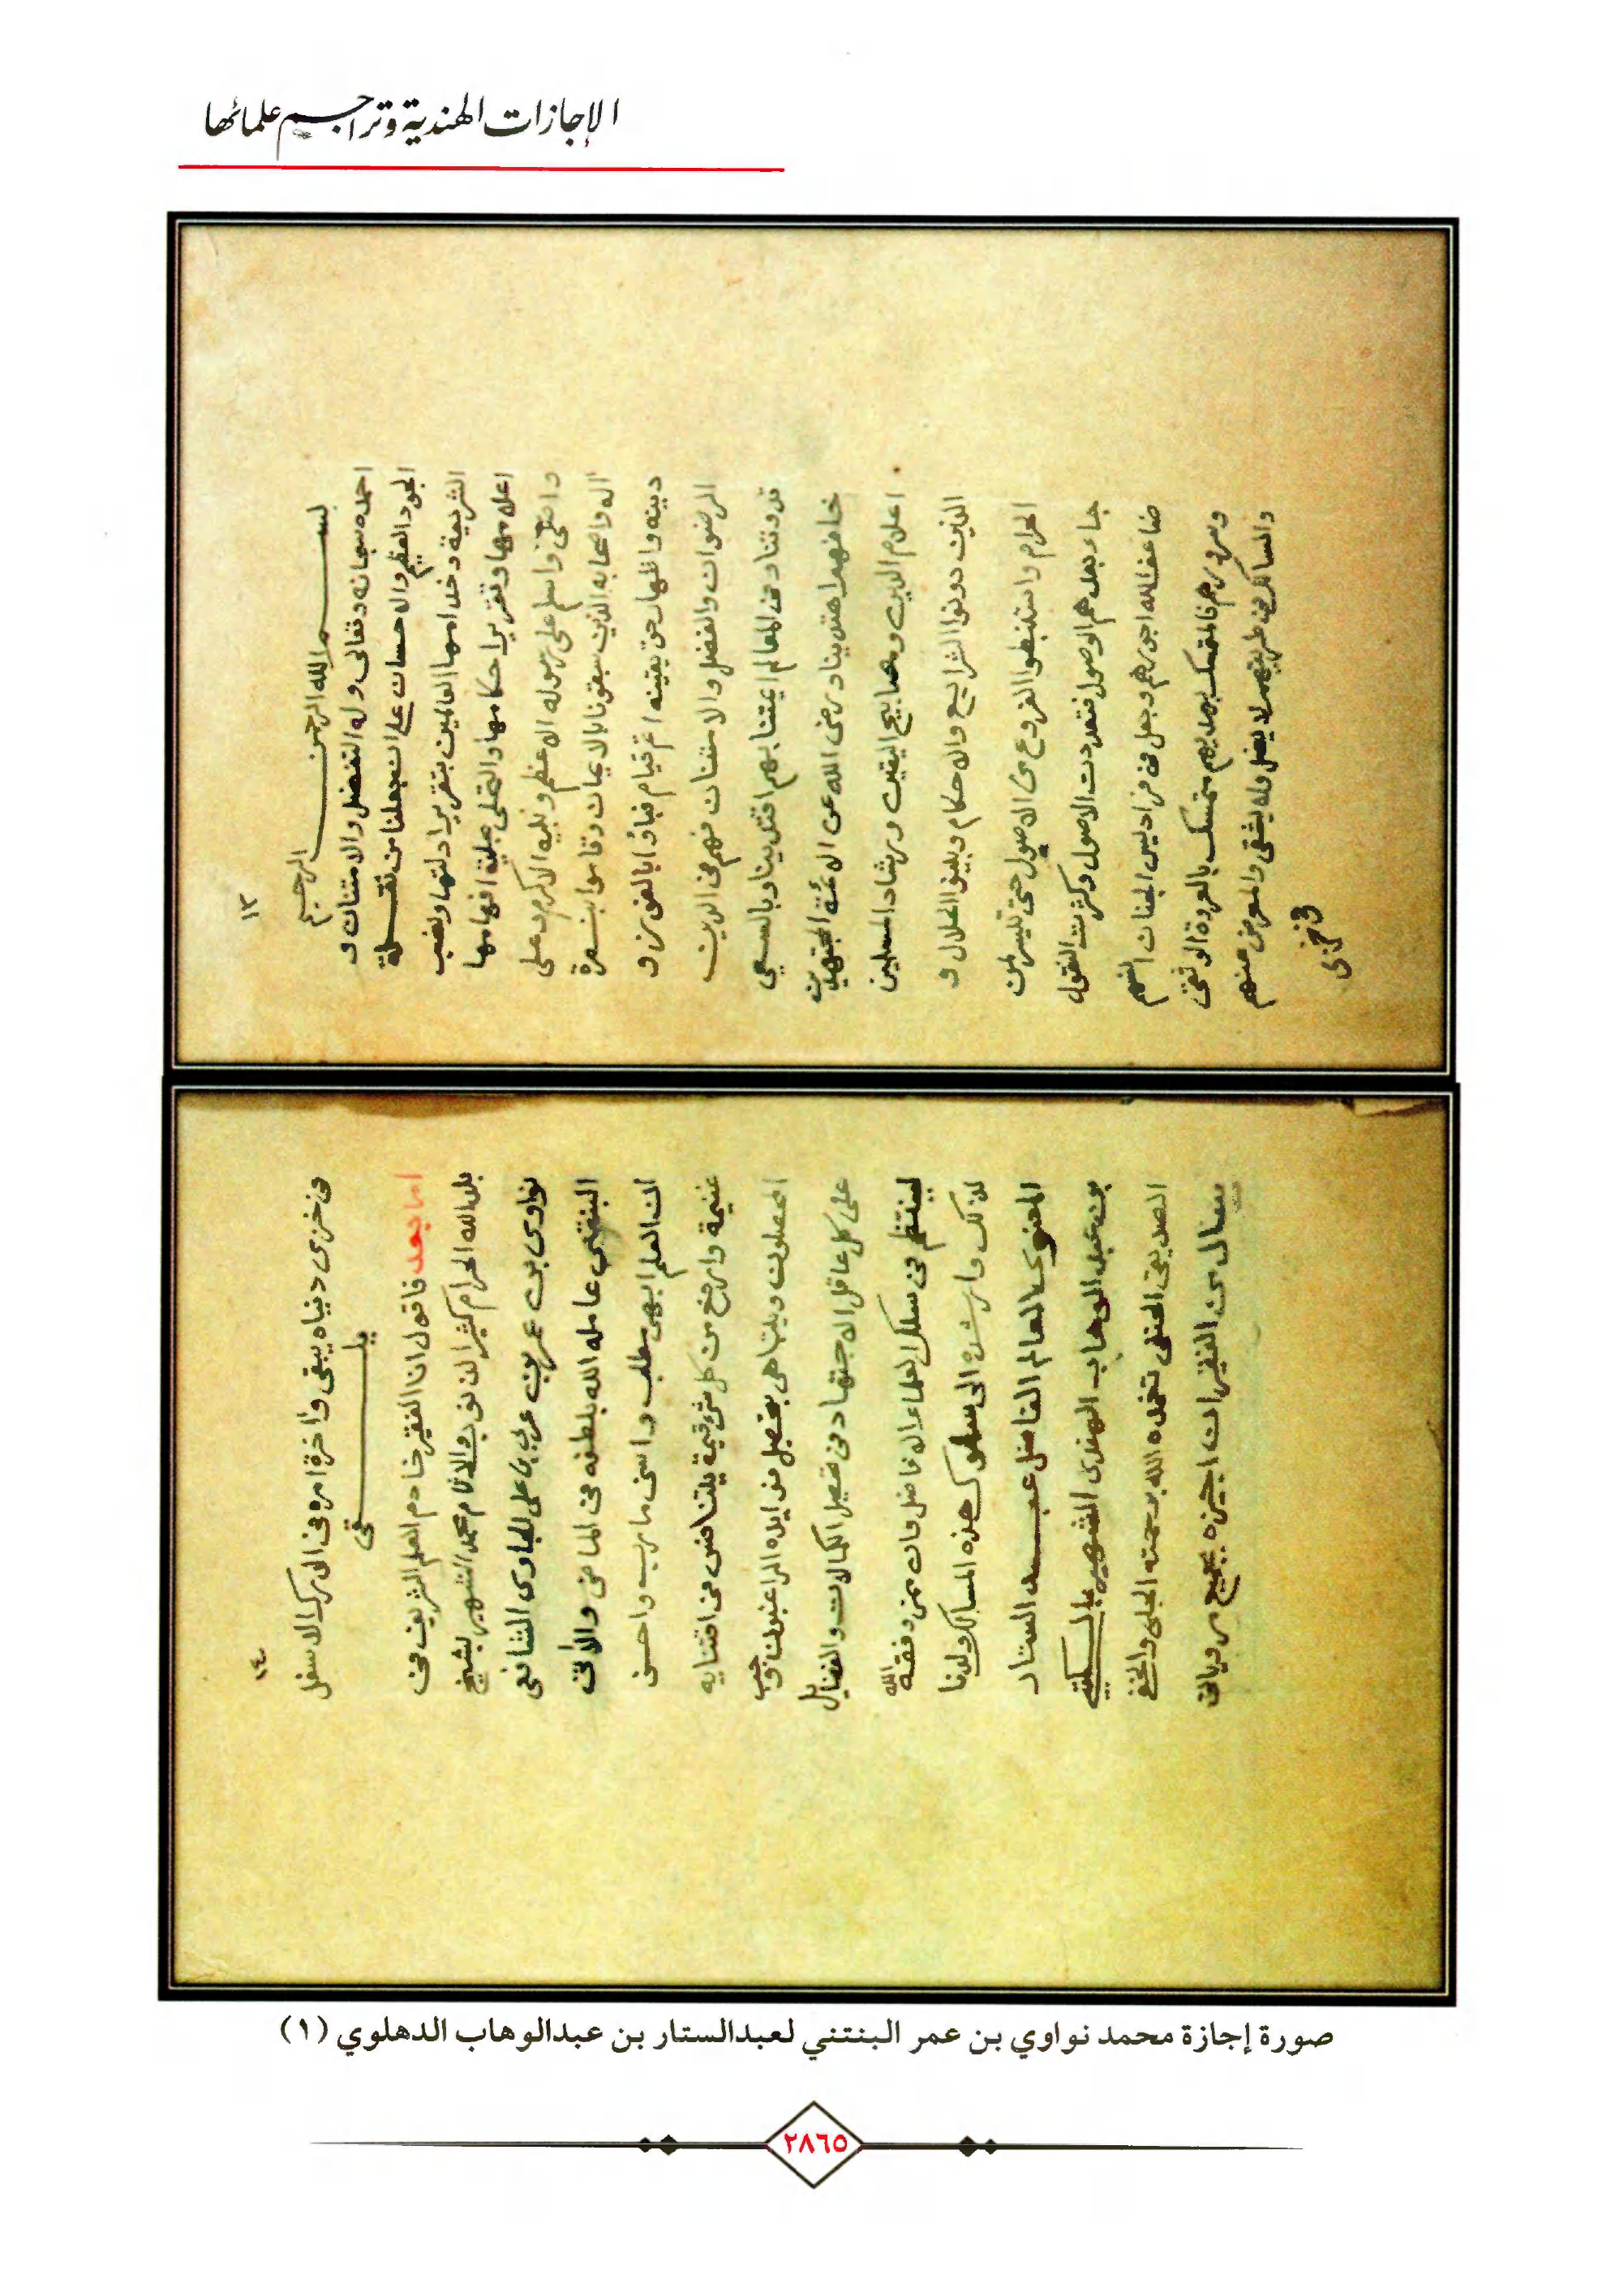 الإجازات الهندية وتراجم علمائها
١٣
بسم الله الرحمن الرحيم
احمده سبحانه وتعالى وله التفضل والامتنان و
الجود العظيم والاحسان على ان جعلنا من نقلة
الشريعة وخدامها العالمين بتقرير ادلتها ونصب
اعلامها وتقرير احكامها والتحلي بحلية افهامها
واصلي واسلم على رسوله الاعظم ونبيه الاكرم وعلى
اله واصحابه الذين سبقونا بالايمان وقاموا بنصرة
دينه واظهار حق يقينه اتم قيام فباؤا بالفوز و
الرضوان والفضل والامتنان فهم في الدين
قدوتنا وفي المعالم ائمتنا بهم اقتدينا وبالسعي
خلفهم اهتدينا ورضى الله عن الائمة المجتهدين
اعلام الدين ومصابيح اليقين ورشاد المسلمين
الذين دونوا الشرايع والاحكام وبينوا الحلال و
الحرام واستنبطوا الفروع من الاصول حتى تيسر لمن
جاء بعدهم الوصول فتعددت الاصول وكثرت النقول
ضاعف الله اجورهم وجعل في فراديس الجنات
وسرورهم فالمتمسك بهديهم متمسك بالعروة الوثقى
والسالك في طريقهم لا يضل ولا يشقى والمعرض عنهم
في خزى
١٤
في خزى دنياه يبقى واخرة امره في الدرك الاسفل
يلقى
اما بعد فاقول انا الفقير خادم العلم الشريف في
بلد الله الحرام كثير الذنوب والاثام محمد الشهير بشيخ
نواوي بن عمر بن عربي بن علي الجاوي الشافعي
البنتني عامله الله بلطفه في الماضي والآتي
ان العلم ابهى مطلب واسنى مارب واحسن
غنيمة وارفع من كل شئ قيمة يتنافس في اقتنايه
المحصلون ويتباهى بتحصيل مزاياه الراغبون
على كل عاقل الاجتهاد في تحصيل الكمالات والفضايل
لينتظم في سلك العلماء الافاضل وان ممن وفقه الله
لذلك وارشده الى سلوك هذه المسالك ولدنا
المعنوي العالم الفاضل عبد الستار
بن عبد الوهاب الهندي الشهير بالمكي
الصديقي الحنفي تغمده الله برحمته الجلي والخفي
سال من الفقير ان اجيزه بجميع مروياتي
صورة إجازة محمد نواوي بن عمر البنتني لعبدالستار بن عبدالوهاب الدهلوي (١)
٢٨٦٥